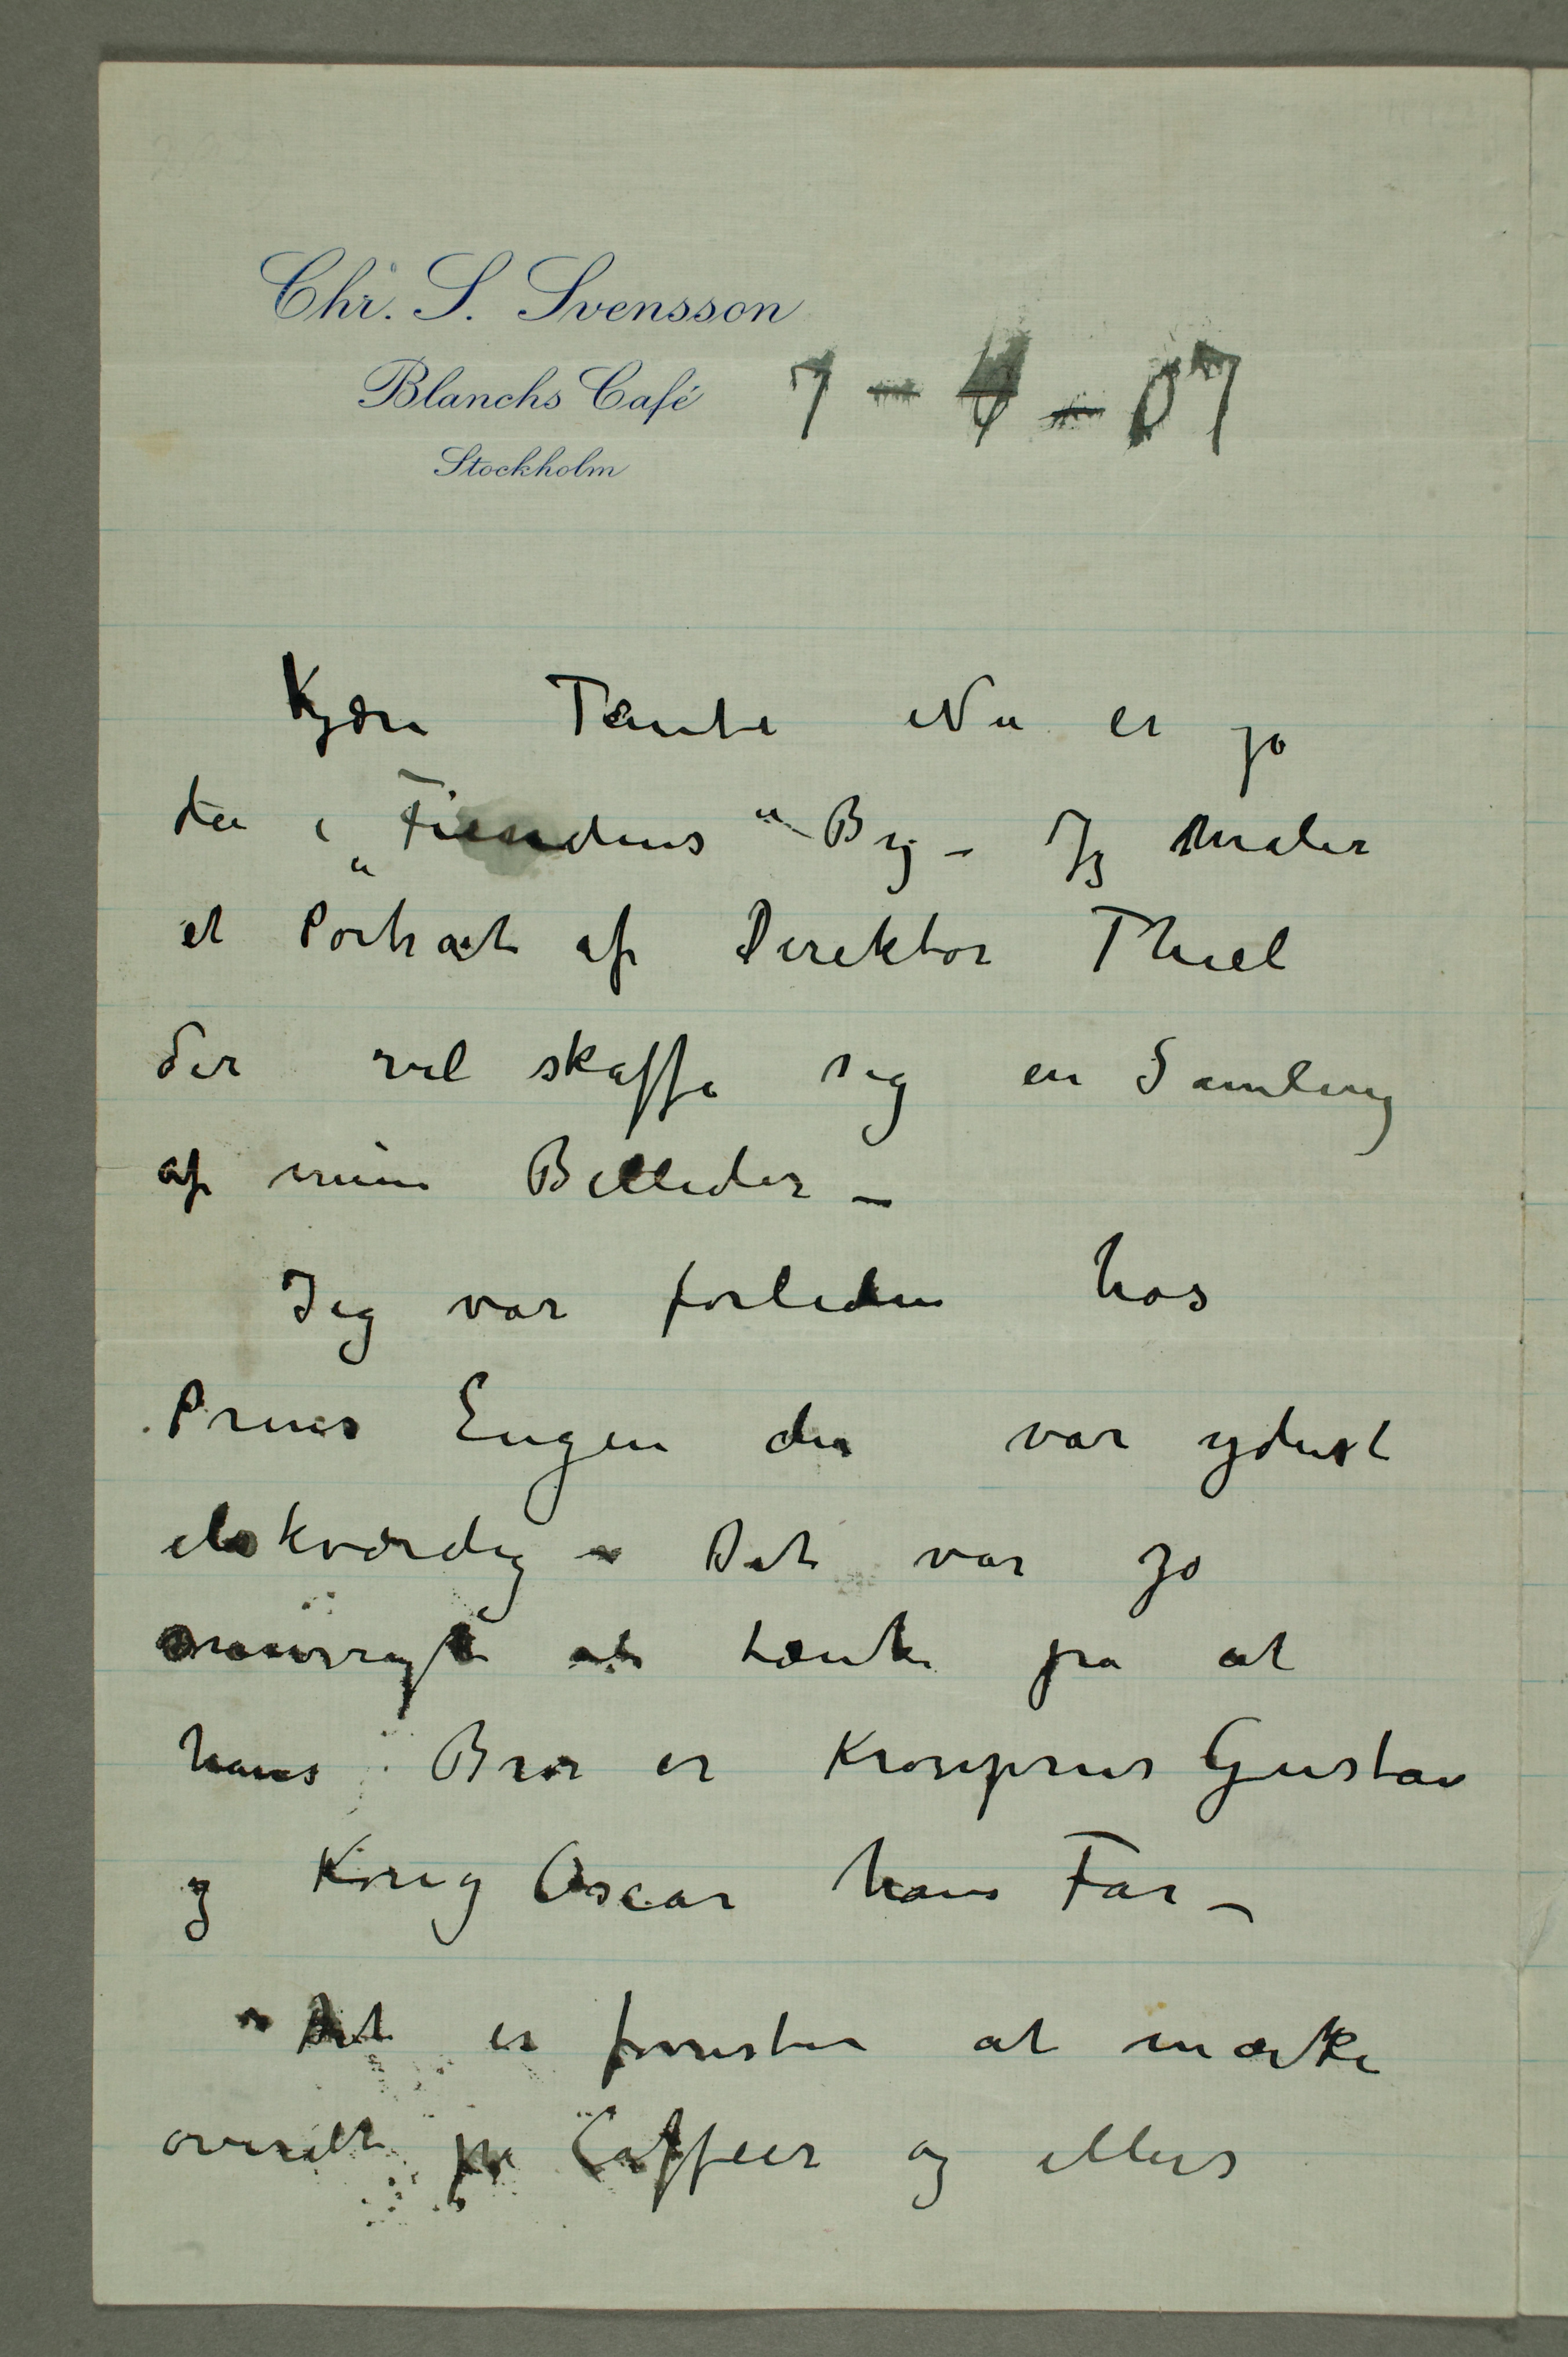 Chr. S. Svensson
Blanchs Café
Stockholm
7 – 4 – 07
Kjære Tante Nu er jo
du i „Fiendens“ By – Jeg maler
et Portræt af Direktør Thiel
der vil skaffe sig en Samling
af mine Billeder –
Jeg var forleden hos
Prins Eugen der var yderst
elskværdig – Det var jo
at tænke på at
hans Bror er Kronprins Gustav
og Kong Oscar hans Far –
– Det er forresten at mærke
overalt på Caffeer og ellers